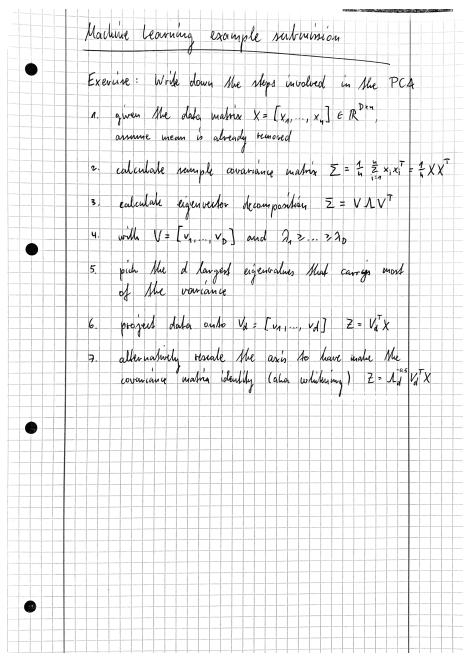 Machine Learning example submission
Exercise: Write down the steps involved in the PCA
1. given the data matrix X = [x₁,..., xₙ] ∈ ℝ^(D×n),
assume mean is already removed
2. calculate sample covariance matrix Σ = 1/n Σᵢ₌₁ⁿ xᵢxᵢᵀ = 1/n XXᵀ
3. calculate eigenvector decomposition Σ = VΛVᵀ
4. with V = [v₁,..., v_D] and λ₁ ≥ ... ≥ λ_D
5. pick the d largest eigenvalues that carry most
of the variance
6. project data onto V_d = [v₁,..., v_d] Z = V_dᵀX
7. alternatively rescale the axis to have make the
covariance matrix identity (aka whitening) Z = Λ_d^(-0.5) V_dᵀX